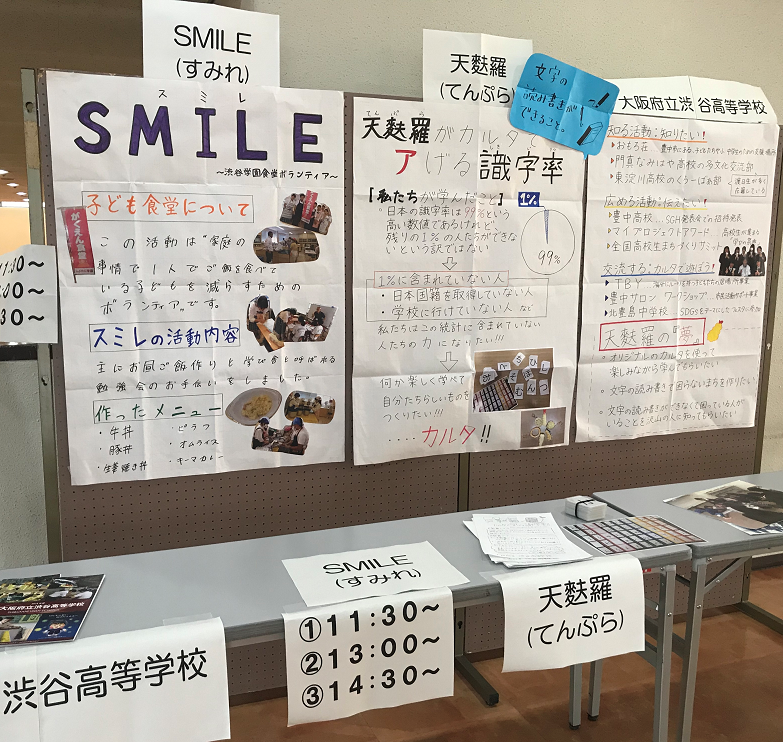 SMILE
(すみれ)
天麩羅
(てんぷら)
文字の
読み書きが
できること。
大阪府立渋谷高等学校
スミレ
SMILE
～渋谷学園食堂ボランティア～
子ども食堂について
がくえん食堂
この活動は"家庭の
事情で1人でご飯を食べて
いる子どもを減らすための
ボランティア"です。
スミレの活動内容
主にお昼ご飯作りと学び舎と呼ばれる
勉強会のお手伝いをしました。
作ったメニュー
・牛丼
・豚丼
・生姜焼き丼
・ピラフ
・オムライス
・キーマカレー
てんぷら
天麩羅がカルタで
アげる識字率
【私たちが学んだこと】
・日本の識字率は99%という
高い数値であるけれど、
残りの1%の人たちができな
いという訳ではない
1%
99%
1%に含まれていない人
・日本国籍を取得していない人
・学校に行けていない人 など
私たちはこの統計に含まれていない
人たちの力になりたい!!!
何か楽しく学べて
自分たちらしいものを
つくりたい!!!
‥‥カルタ!!
知る活動:知りたい!
▶おもろ荘
▶門真なみはや高校の多文化交流部
▶東淀川高校の
広める活動:伝えたい!
▶豊中高校…SGH発表会での招待発表
▶マイプロジェクトアワード
▶全国高校生まちづくりサミット
交流する:カルタで遊ぼう!
▶TBY
▶豊中サロン ワークショップ
▶北豊島中学校…SDGsをテーマにした
天麩羅の『夢』
○オリジナルのカルタを使って
楽しみながら学んでもらいたい
○文字の読み書きで困らないまちを作りたい
○文字の読み書きができなくて困っている人が
いることを沢山の人に知ってもらいたい
30～
00～
30～
大阪府立渋谷高等学校
渋谷高等学校
SMILE
(すみれ)
①11:30～
②13:00～
③14:30～
天麩羅
(てんぷら)